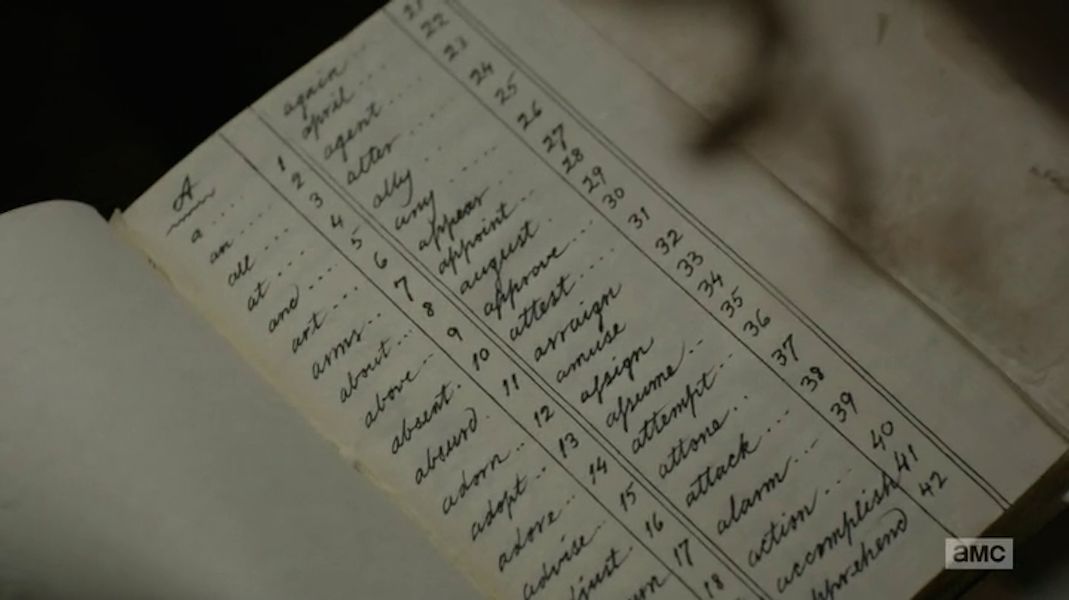 A
a .... 1
an .... 2
all .... 3
at .... 4
and ... 5
art .... 6
arms .. 7
about ... 8
above .. 9
absent . 10
absurd . 11
adorn .. 12
adopt .. 13
adore .. 14
advise .. 15
16
17
18
again .... 21
april .... 22
agent .... 23
alter .... 24
ally .... 25
any .... 26
appear .... 27
appoint .. 28
august ... 29
approve ... 30
attest .... 31
arraign 32
amuse 33
aſsign 34
aſsume .. 35
attempt .. 36
attone .. 37
attack ... 38
alarm ... 39
action ... 40
accomplish 41
42
amc